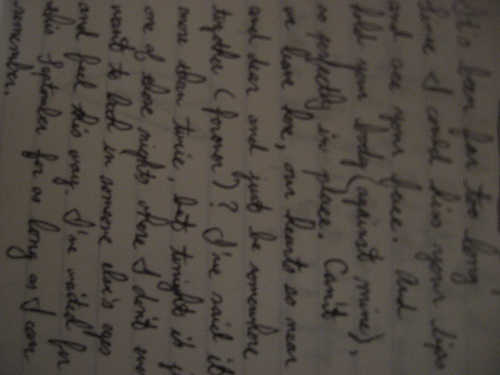 It's been far too long
Since I could kiss your lips
and see your face. And
hold your body (against mine),
so perfectly in place. Can't
we leave here, our hearts so near
and dear and just be somewhere
together (forever)? I've said it
more than twice, but tonight it
one of those nights where I don't
want to look in someone else's eyes
and feel this way. I've waited for
this September for as long as I can
remember.